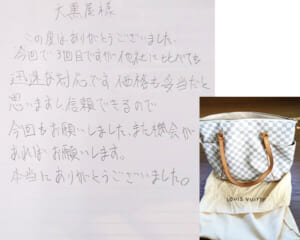 大黒屋様
この度はありがとうございました。
今回で3回目ですが他社に比べても
迅速な対応です価格も妥当だと
思いますし信頼できるので
今回もお願いしました。また機会が
あればお願いします。
本当にありがとうございました。
LOUIS VUITTON